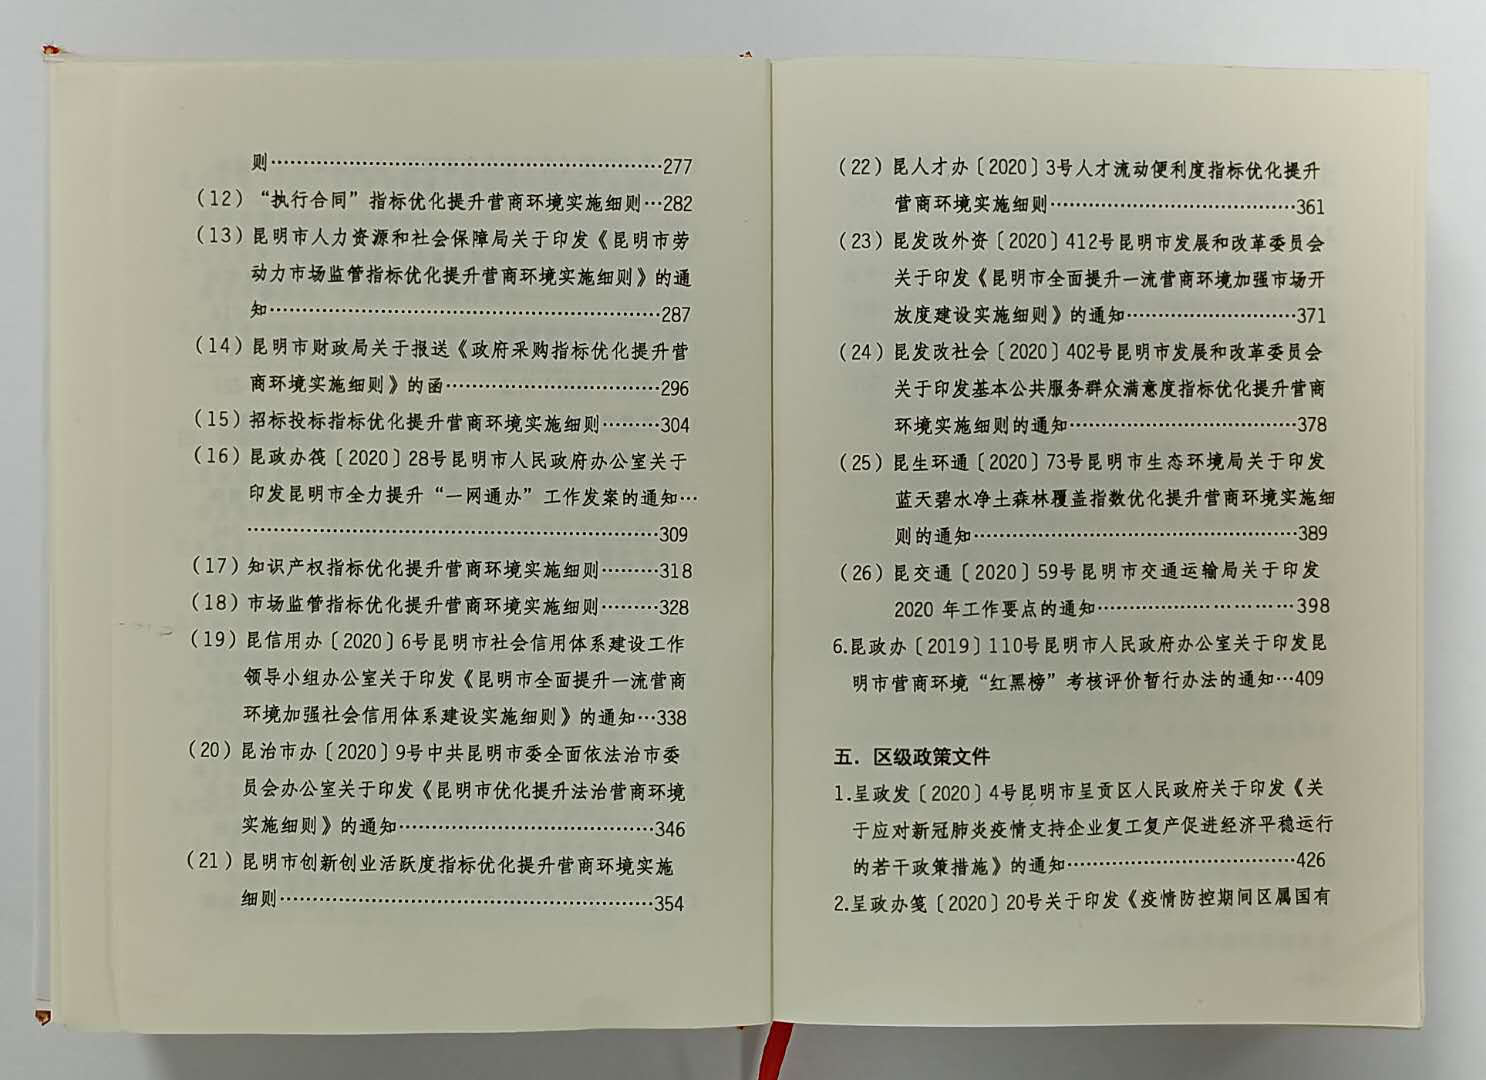 则……………………………………………………277
（12）“执行合同”指标优化提升营商环境实施细则…282
（13）昆明市人力资源和社会保障局关于印发《昆明市劳
动力市场监管指标优化提升营商环境实施细则》的通
知……………………………………………………287
（14）昆明市财政局关于报送《政府采购指标优化提升营
商环境实施细则》的函……………………………296
（15）招标投标指标优化提升营商环境实施细则………304
（16）昆政办笺〔2020〕28号昆明市人民政府办公室关于
印发昆明市全力提升“一网通办”工作发案的通知…
………………………………………………………309
（17）知识产权指标优化提升营商环境实施细则………318
（18）市场监管指标优化提升营商环境实施细则………328
（19）昆信用办〔2020〕6号昆明市社会信用体系建设工作
领导小组办公室关于印发《昆明市全面提升一流营商
环境加强社会信用体系建设实施细则》的通知…338
（20）昆治市办〔2020〕9号中共昆明市委全面依法治市委
员会办公室关于印发《昆明市优化提升法治营商环境
实施细则》的通知…………………………………346
（21）昆明市创新创业活跃度指标优化提升营商环境实施
细则…………………………………………………354
（22）昆人才办〔2020〕3号人才流动便利度指标优化提升
营商环境实施细则…………………………………361
（23）昆发改外资〔2020〕412号昆明市发展和改革委员会
关于印发《昆明市全面提升一流营商环境加强市场开
放度建设实施细则》的通知………………………371
（24）昆发改社会〔2020〕402号昆明市发展和改革委员会
关于印发基本公共服务群众满意度指标优化提升营商
环境实施细则的通知………………………………378
（25）昆生环通〔2020〕73号昆明市生态环境局关于印发
蓝天碧水净土森林覆盖指数优化提升营商环境实施细
则的通知……………………………………………389
（26）昆交通〔2020〕59号昆明市交通运输局关于印发
2020 年工作要点的通知……………………………398
6.昆政办〔2019〕110号昆明市人民政府办公室关于印发昆
明市营商环境“红黑榜”考核评价暂行办法的通知…409
五．区级政策文件
1.呈政发〔2020〕4号昆明市呈贡区人民政府关于印发《关
于应对新冠肺炎疫情支持企业复工复产促进经济平稳运行
的若干政策措施》的通知………………………………426
2.呈政办笺〔2020〕20号关于印发《疫情防控期间区属国有